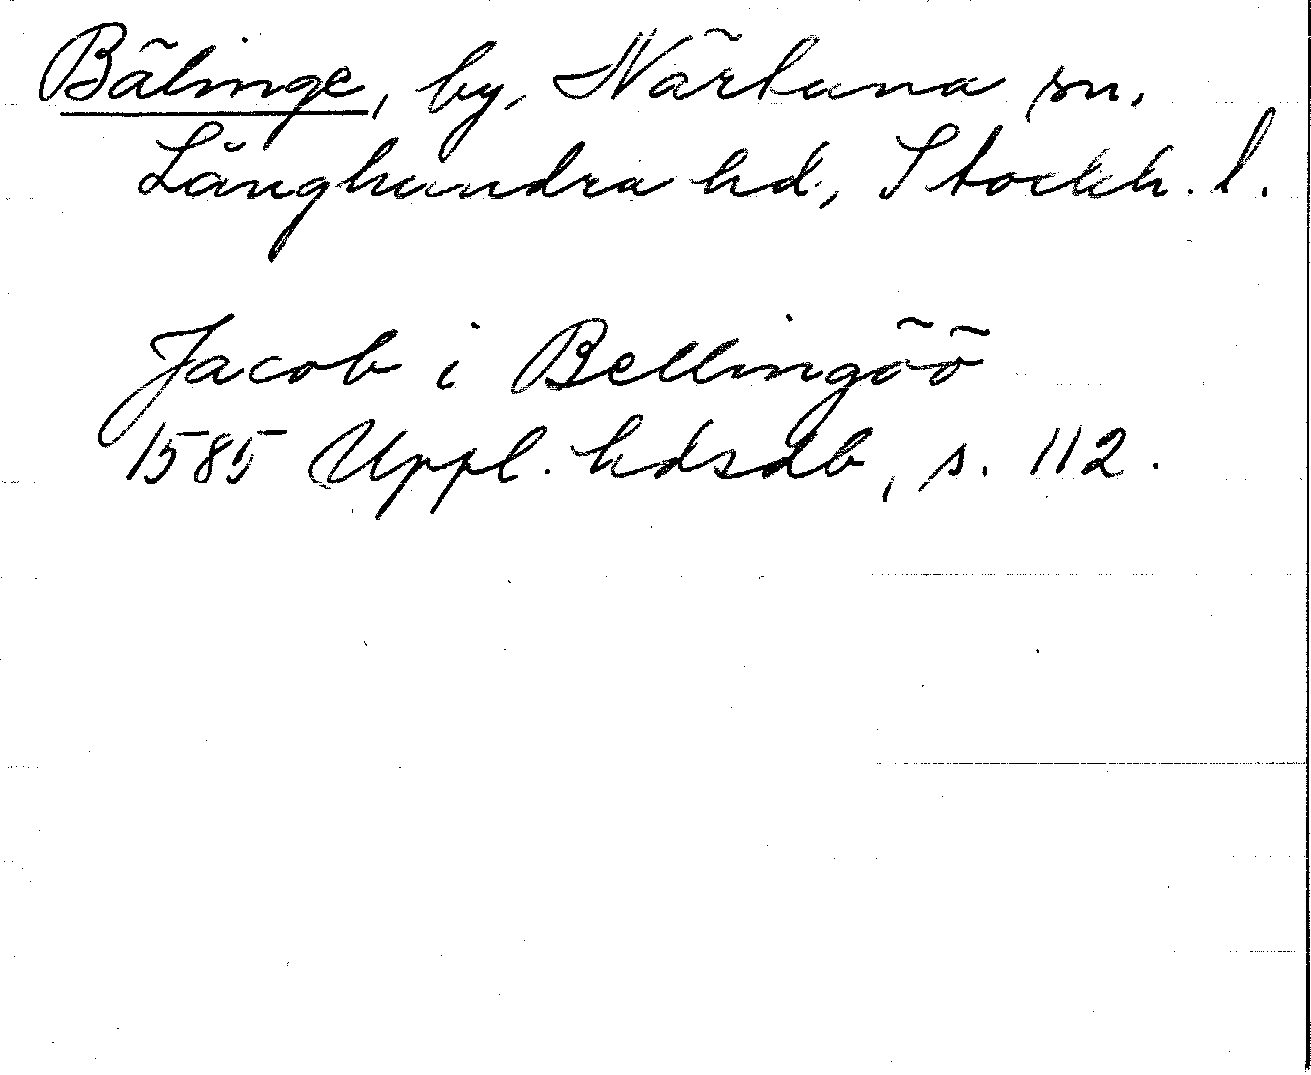 Bälinge, by, Närtuna sn,
Långhundra hd, Stockh. l.
Jacob i Bellingöö
1585 Uppl. hdsdb, s. 112.